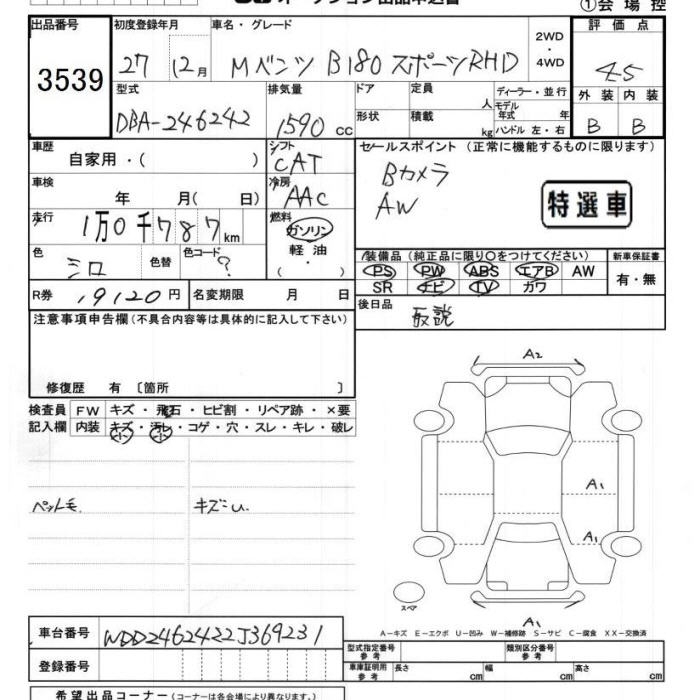 ①会場控
出品番号 初度登録年月 車名・グレード 2WD・4WD 評価点
3539 27 12月 Mベンツ B180 スポーツRHD 45
型式 排気量 ドア 定員 人 ディーラー・並行 外装 内装
DBA-246242 1590 cc 形状 積載 kg モデル年式 年 ハンドル 左・右 B B
車歴 シフト セールスポイント (正常に機能するものに限ります)
自家用・( ) CAT Bカメラ
車検 年 月( 日) 冷房 AAC AW 特選車
走行 1万0千787km 燃料 ガソリン・軽油・
色 シロ 色替 色コード ? 装備品 (純正品に限り○をつけてください) 新車保証書
PS PW ABS エアB AW 有・無
SR ナビ TV カワ
R券 19120円 名変期限 月 日 後日品 取説
注意事項申告欄(不具合内容等は具体的に記入して下さい)
修復歴 有 〔箇所 〕
検査員 FW キズ・飛石・ヒビ割・リペア跡・×要
記入欄 内装 キズ・汚レ・コゲ・穴・スレ・キレ・破レ
小 小
ペット毛 キズ
A2
A1
A1
スペア
A1
A-キズ E-エクボ U-凹み W-補修跡 S-サビ C-腐食 XX-交換済
車台番号 WDD2462422J369231
型式指定番号 参考 類別区分番号 参考
登録番号 車庫証明用 参考 長さ cm 幅 cm 高さ cm
希望出品コーナー (コーナーは各会場により異なります。)